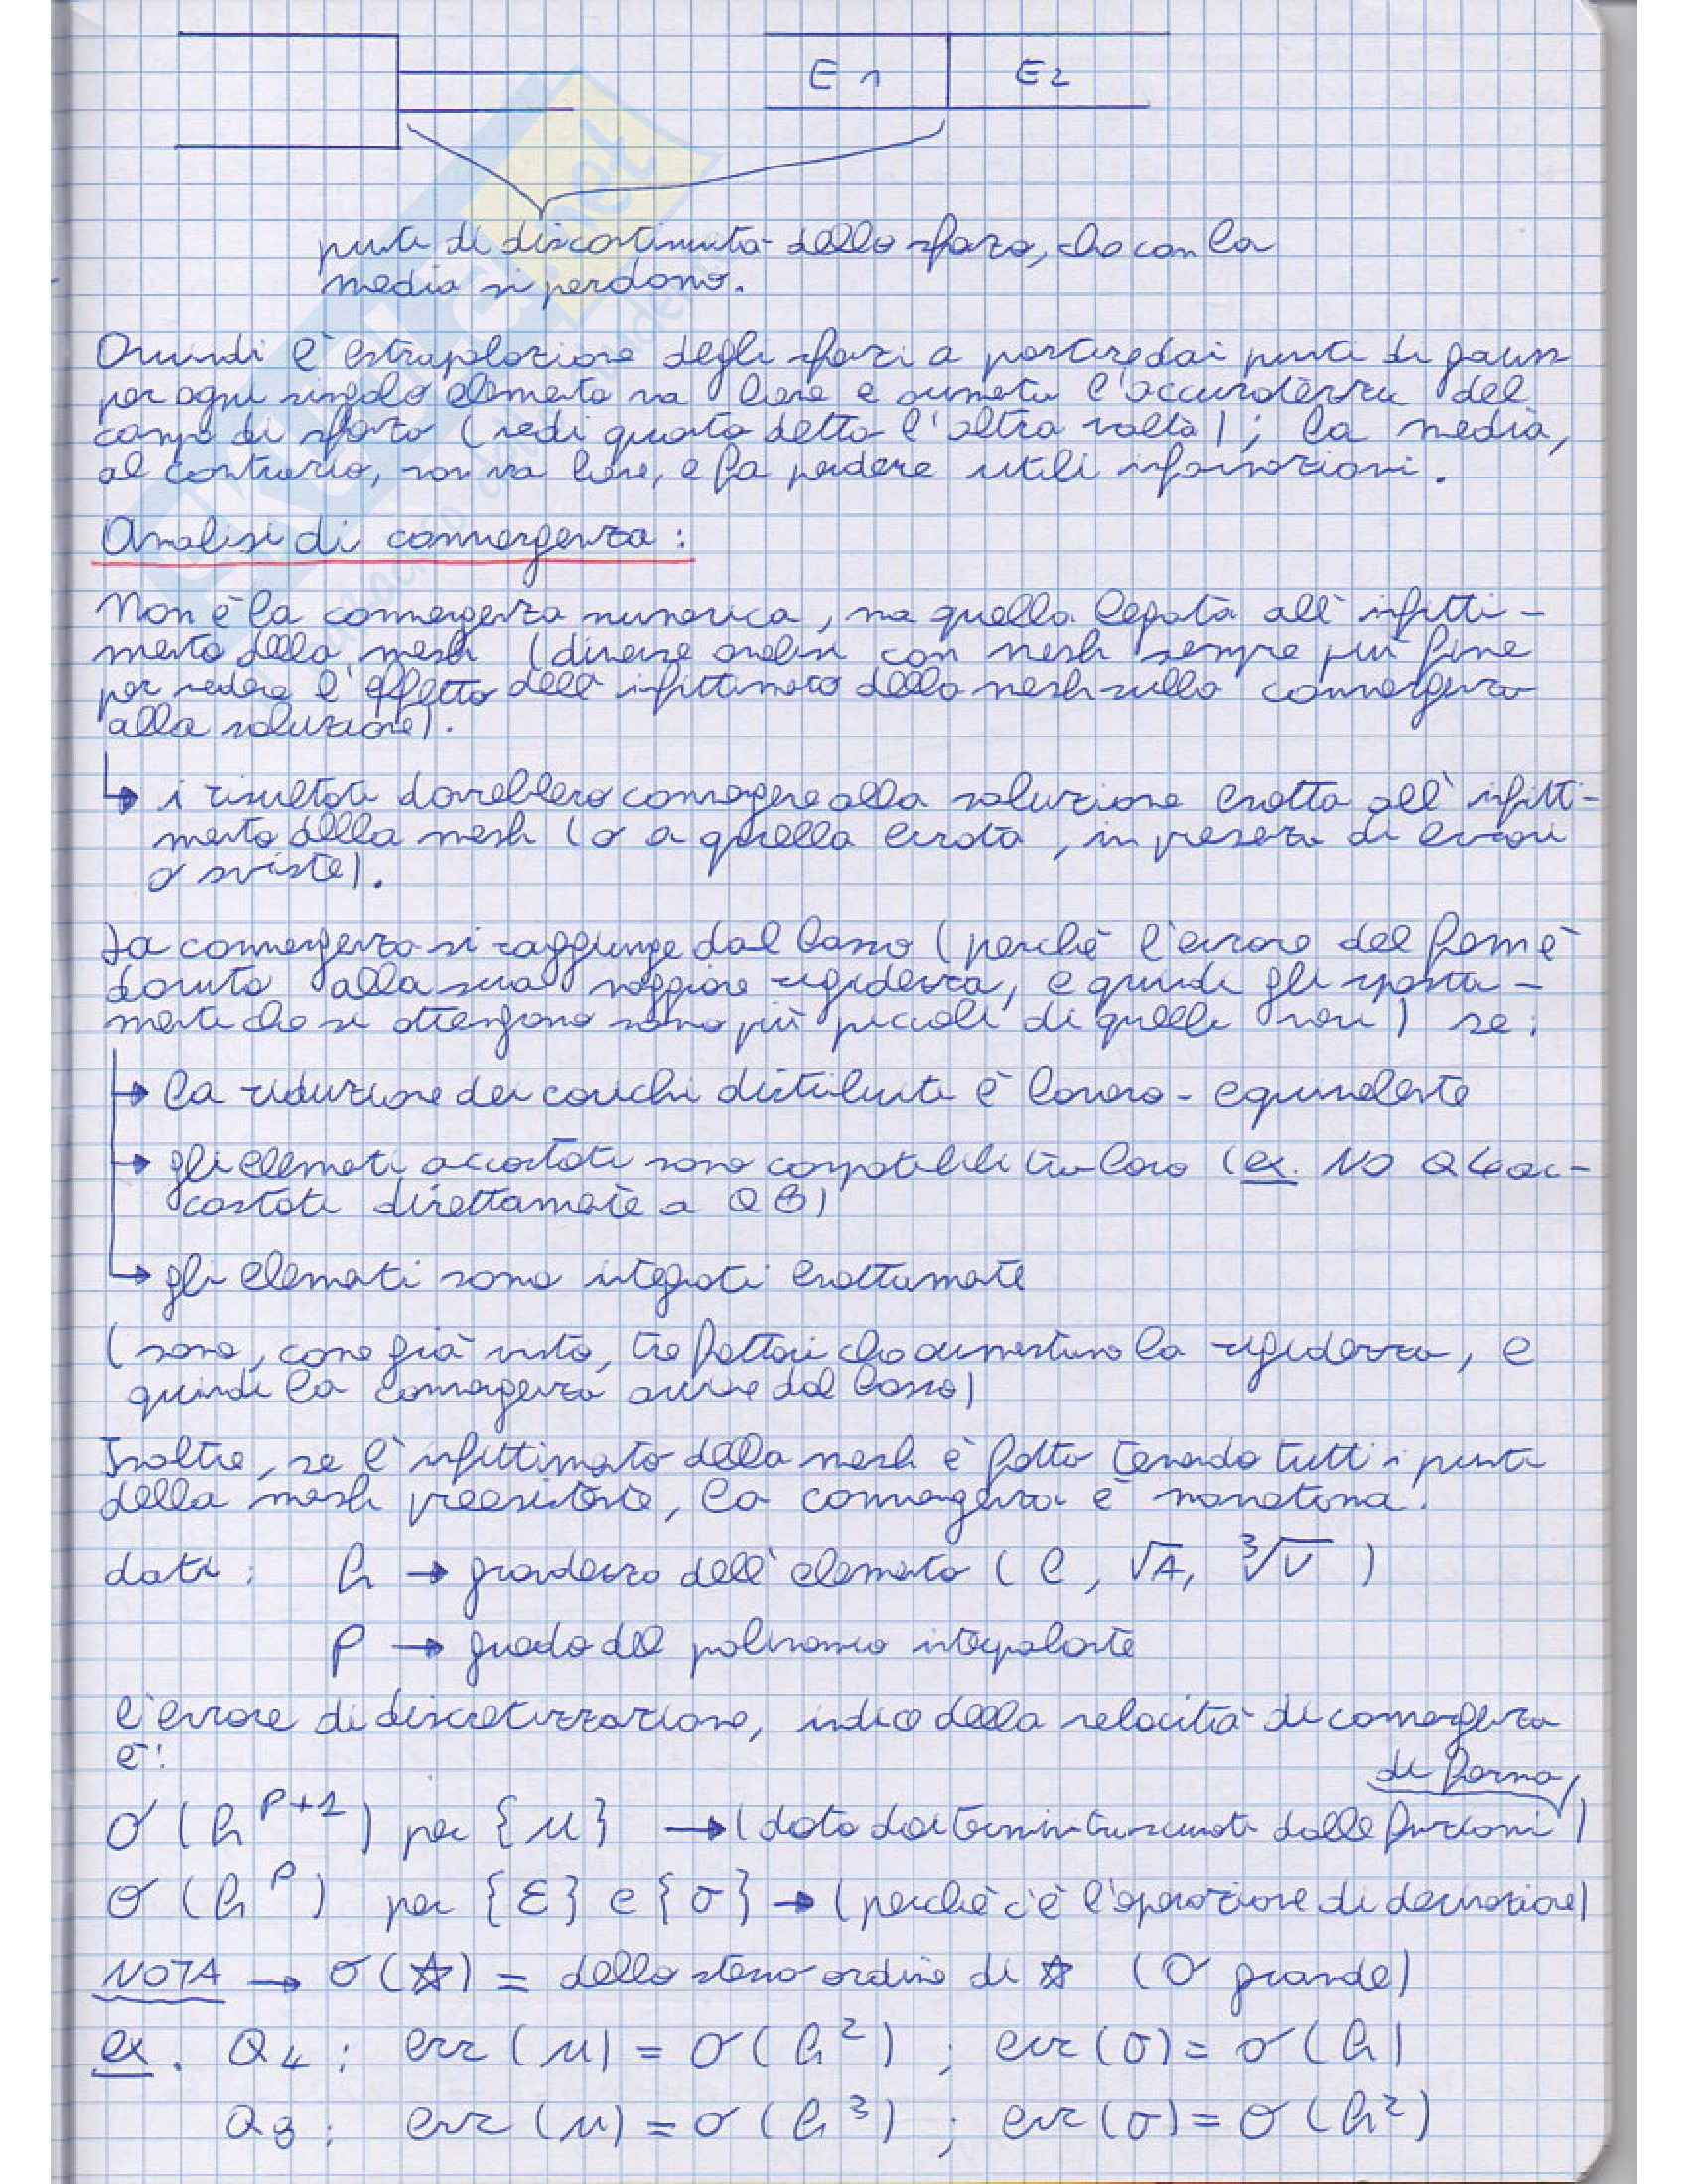 E1 E2
punti di discontinuità dello sforzo, che con la
media si perdono.
Quindi l'estrapolazione degli sforzi a partire dai punti di gauss
per ogni singolo elemento va bene e aumenta l'accuratezza del
campo di sforzo (vedi quanto detto l'altra volta); la media,
al contrario, non va bene, e fa perdere utili informazioni.
Analisi di convergenza:
Non è la convergenza numerica, ma quella legata all'infitti-
mento della mesh (diverse analisi con mesh sempre più fine
per vedere l'effetto dell'infittimento della mesh sulla convergenza
alla soluzione).
↳ i risultati dovrebbero convergere alla soluzione esatta all'infitti-
mento della mesh (o a quella errata, in presenza di errori
o sviste).
La convergenza si raggiunge dal basso (perchè l'errore del fem è
dovuto alla sua maggiore rigidezza, e quindi gli sposta-
menti che si ottengono sono più piccoli di quelli veri) se:
→ la riduzione dei carichi distribuiti è lavoro-equivalente
→ gli elementi accostati sono compatibili tra loro (ex. NO Q4 ac-
costati direttamente a Q8)
→ gli elementi sono integrati esattamente
(sono, come già visto, tre fattori che aumentano la rigidezza, e
quindi la convergenza avviene dal basso)
Inoltre, se l'infittimento della mesh è fatto tenendo tutti i punti
della mesh preesistente, la convergenza è monotona.
dati: h → grandezza dell'elemento (l, √A, ∛V)
p → grado del polinomio interpolante
l'errore di discretizzazione, indice della velocità di convergenza
è:
di forma
O(h^{p+1}) per {u} → (dato dai termini trascurati dalle funzioni)
O(h^p) per {ε} e {σ} → (perchè c'è l'operazione di derivazione)
NOTA → O(☆) = dello stesso ordine di ☆ (O grande)
ex. Q4: err(u) = O(h²); err(σ) = O(h)
Q8: err(u) = O(h³); err(σ) = O(h²)